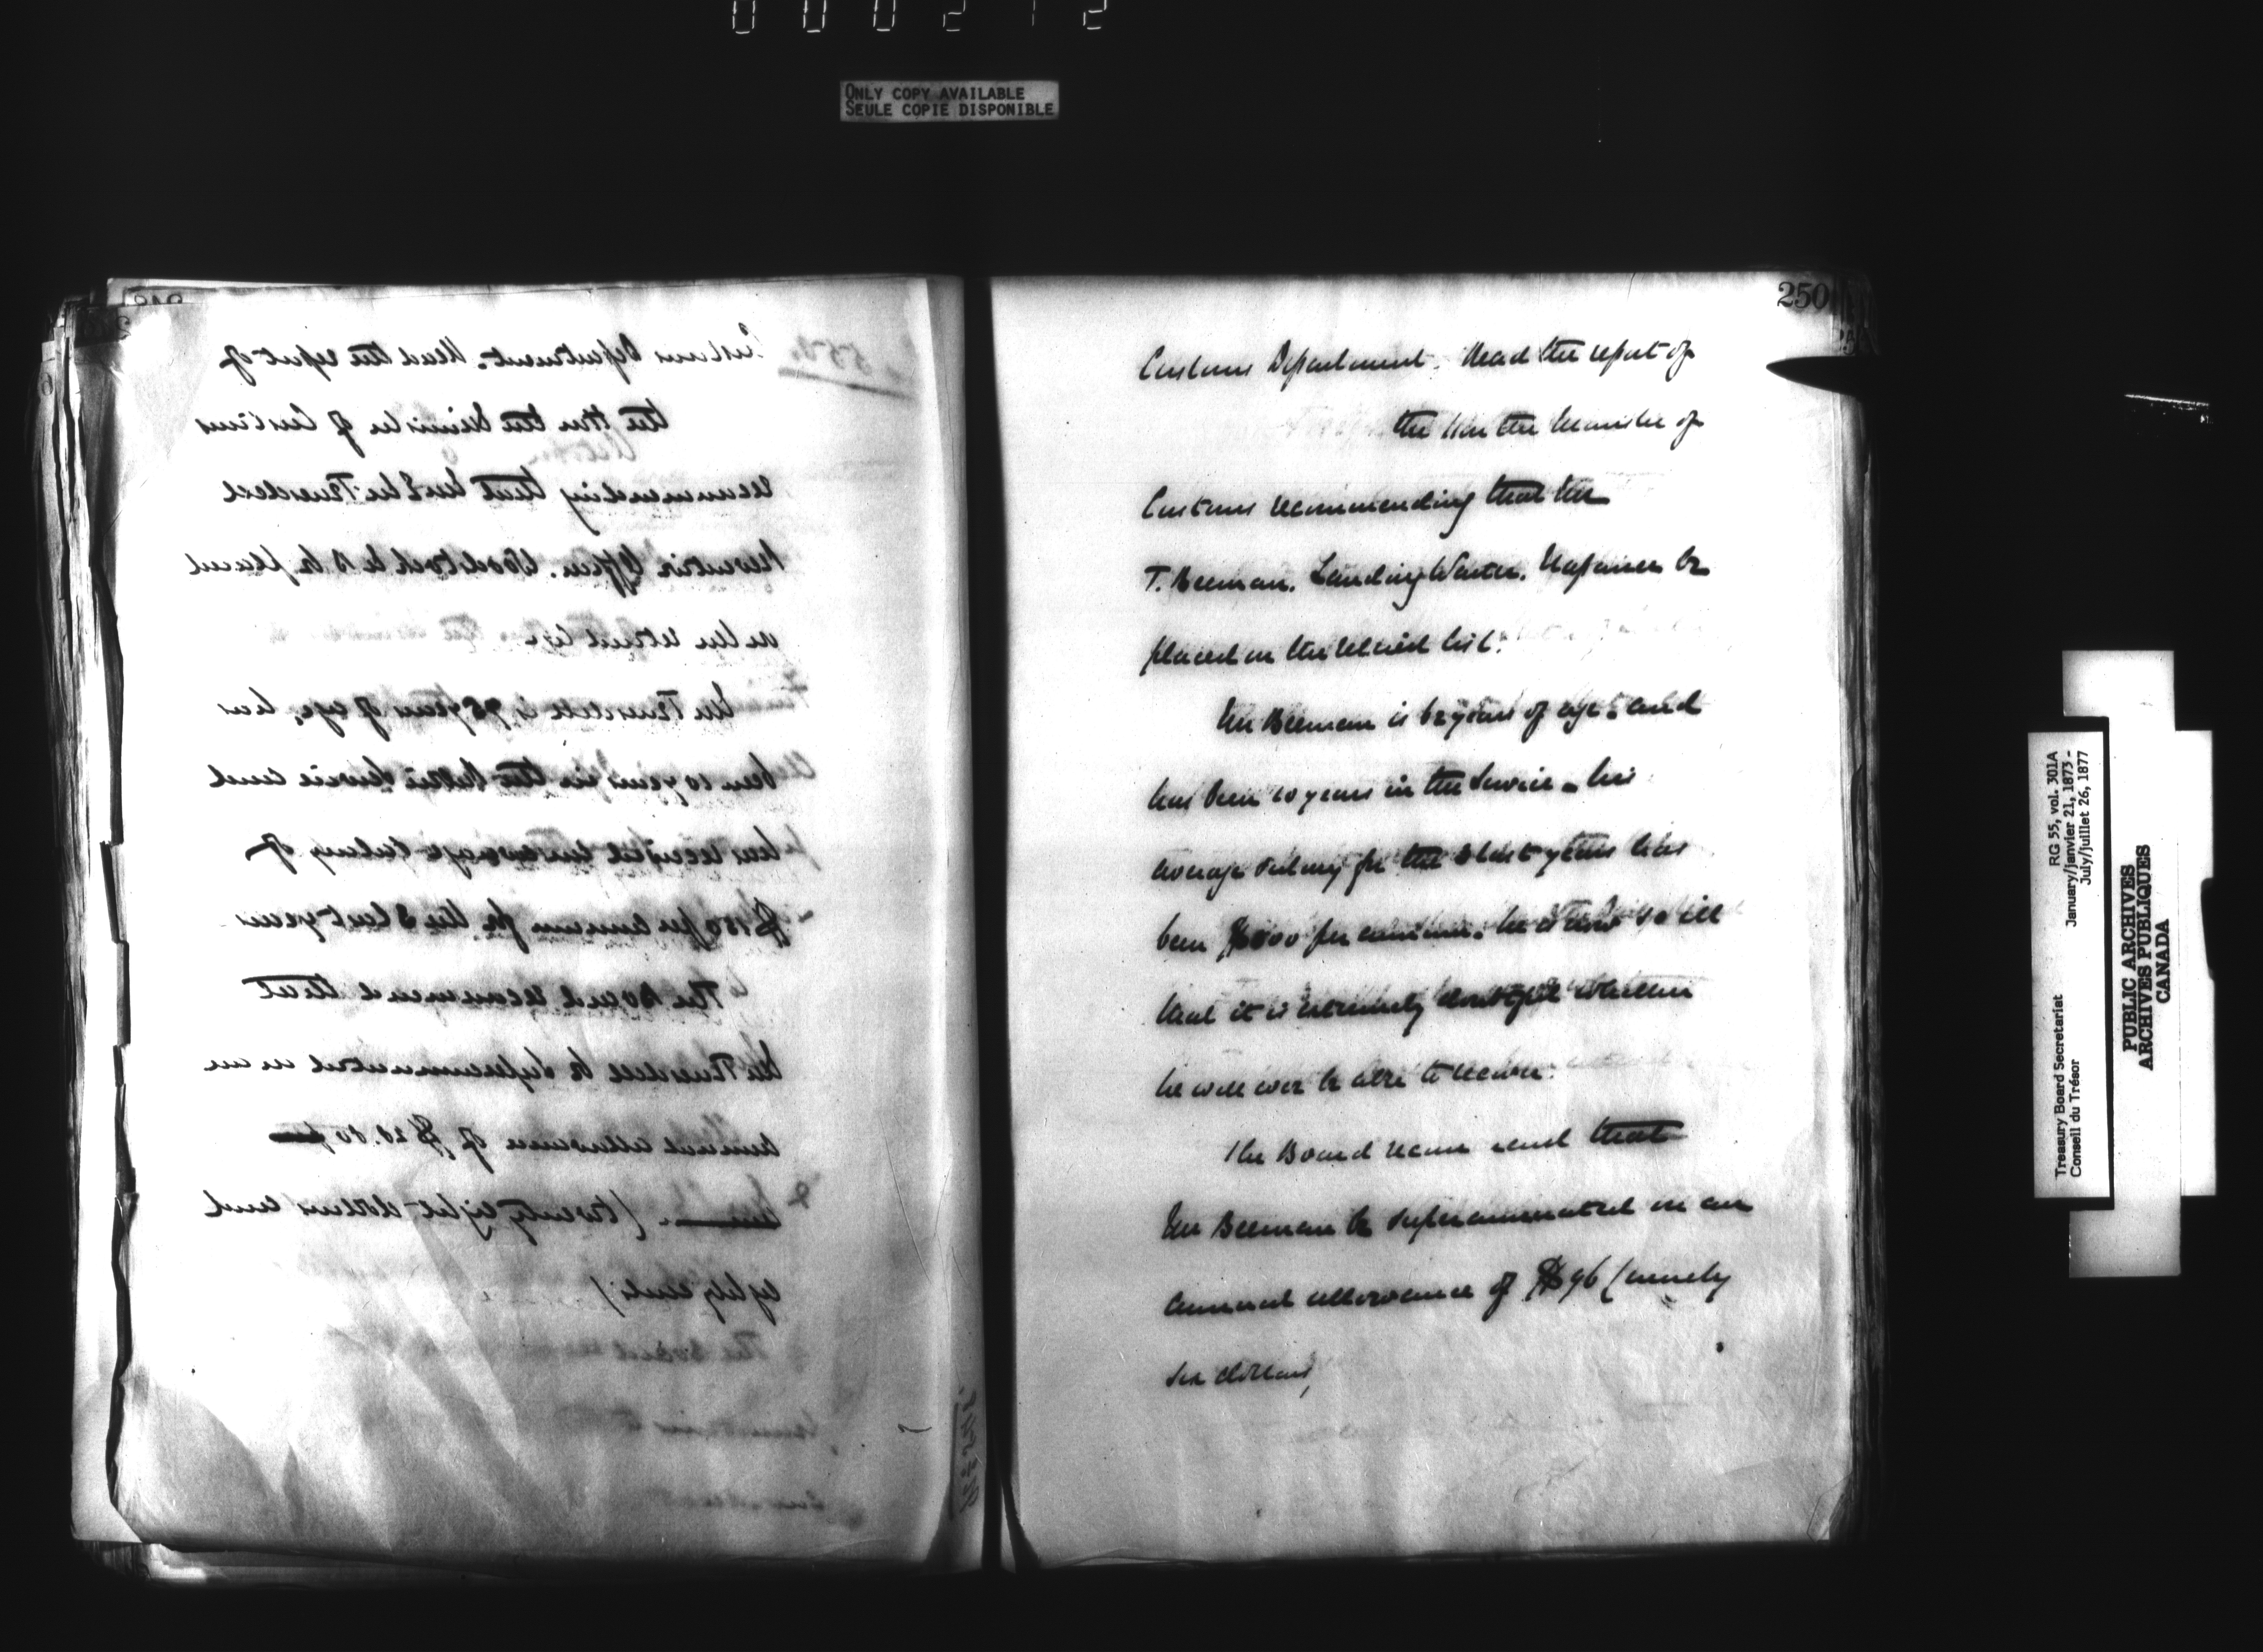 ONLY COPY AVAILABLE
SEULE COPIE DISPONIBLE
Customs Department. Read the report of
the Hon the Minister of Customs
recommending that Mr
Preventive Officer. Woodstock N B be placed
on the retired list
Mr is 75 years of age, has
been 10 years in the Service and
has received an average salary of
$150 per annum for the 3 last years
The Board recommend that
Mr be superannuated on an
annual allowance of $28.80 per
(twenty eight dollars and
eighty cents)
250
Customs Department. Read the report of
the Hon the Minister of
Customs recommending that Mr
T. Beeman. Landing Waiter. Napanee be
placed on the retired list.
Mr Beeman is 62 years of age. and
has been 10 years in the Service - his
average salary for the 3 last years has
been $500 per annum. he is now so ill
that it is extremely doubtful whether
he will ever be able to recover.
The Board recommend that
Mr Beeman be superannuated on an
annual allowance of $96 (ninety
six dollars)
RG 55, vol. 301A
January/janvier 21, 1873 -
July/juillet 26, 1877
Treasury Board Secretariat
Conseil du Trésor
PUBLIC ARCHIVES
ARCHIVES PUBLIQUES
CANADA